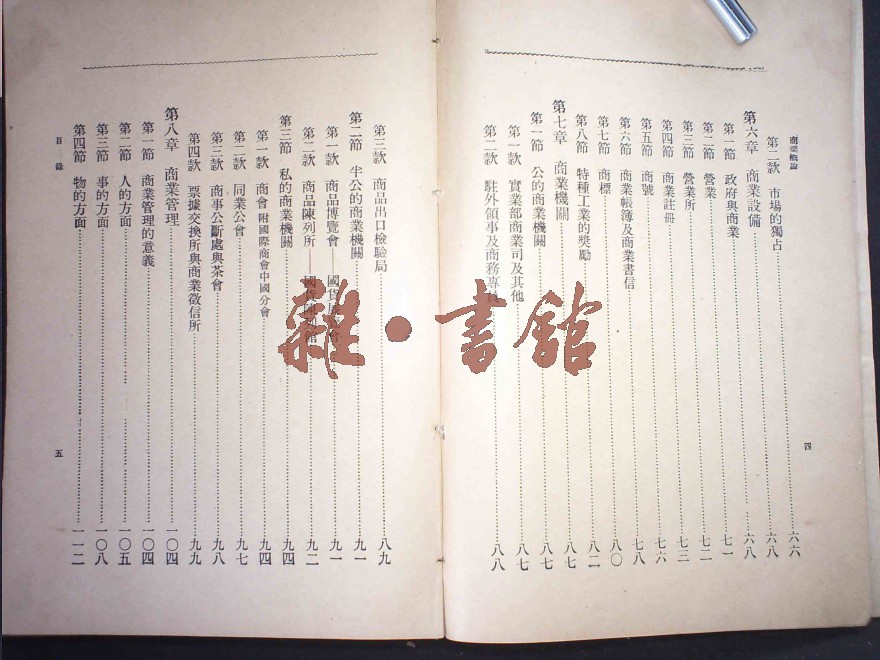 商業概論
四
第二款 市場的獨占……六六
第六章 商業設備……六八
第一節 政府與商業……六八
第二節 營業……七一
第三節 營業所……七二
第四節 商業註冊……七三
第五節 商號……七六
第六節 商業帳簿及商業書信……七八
第七節 商標……八〇
第八節 特種工業的獎勵……八二
第七章 商業機關……八七
第一節 公的商業機關……八七
第一款 實業部商業司及其他……八七
第二款 駐外領事及商務專……八八
第三款 商品出口檢驗局……八九
第二節 半公的商業機關……九一
第一款 商品博覽會——國貨……九一
第二款 商品陳列所——國貨陳列館……九二
第三節 私的商業機關……九四
第一款 商會 附國際商會中國分會……九四
第二款 同業公會……九七
第三款 商事公斷處與茶會……九九
第四款 票據交換所與商業徵信所……九九
第八章 商業管理……一〇四
第一節 商業管理的意義……一〇四
第二節 人的方面……一〇五
第三節 事的方面……一〇八
第四節 物的方面……一一二
目錄
五
雜·書館